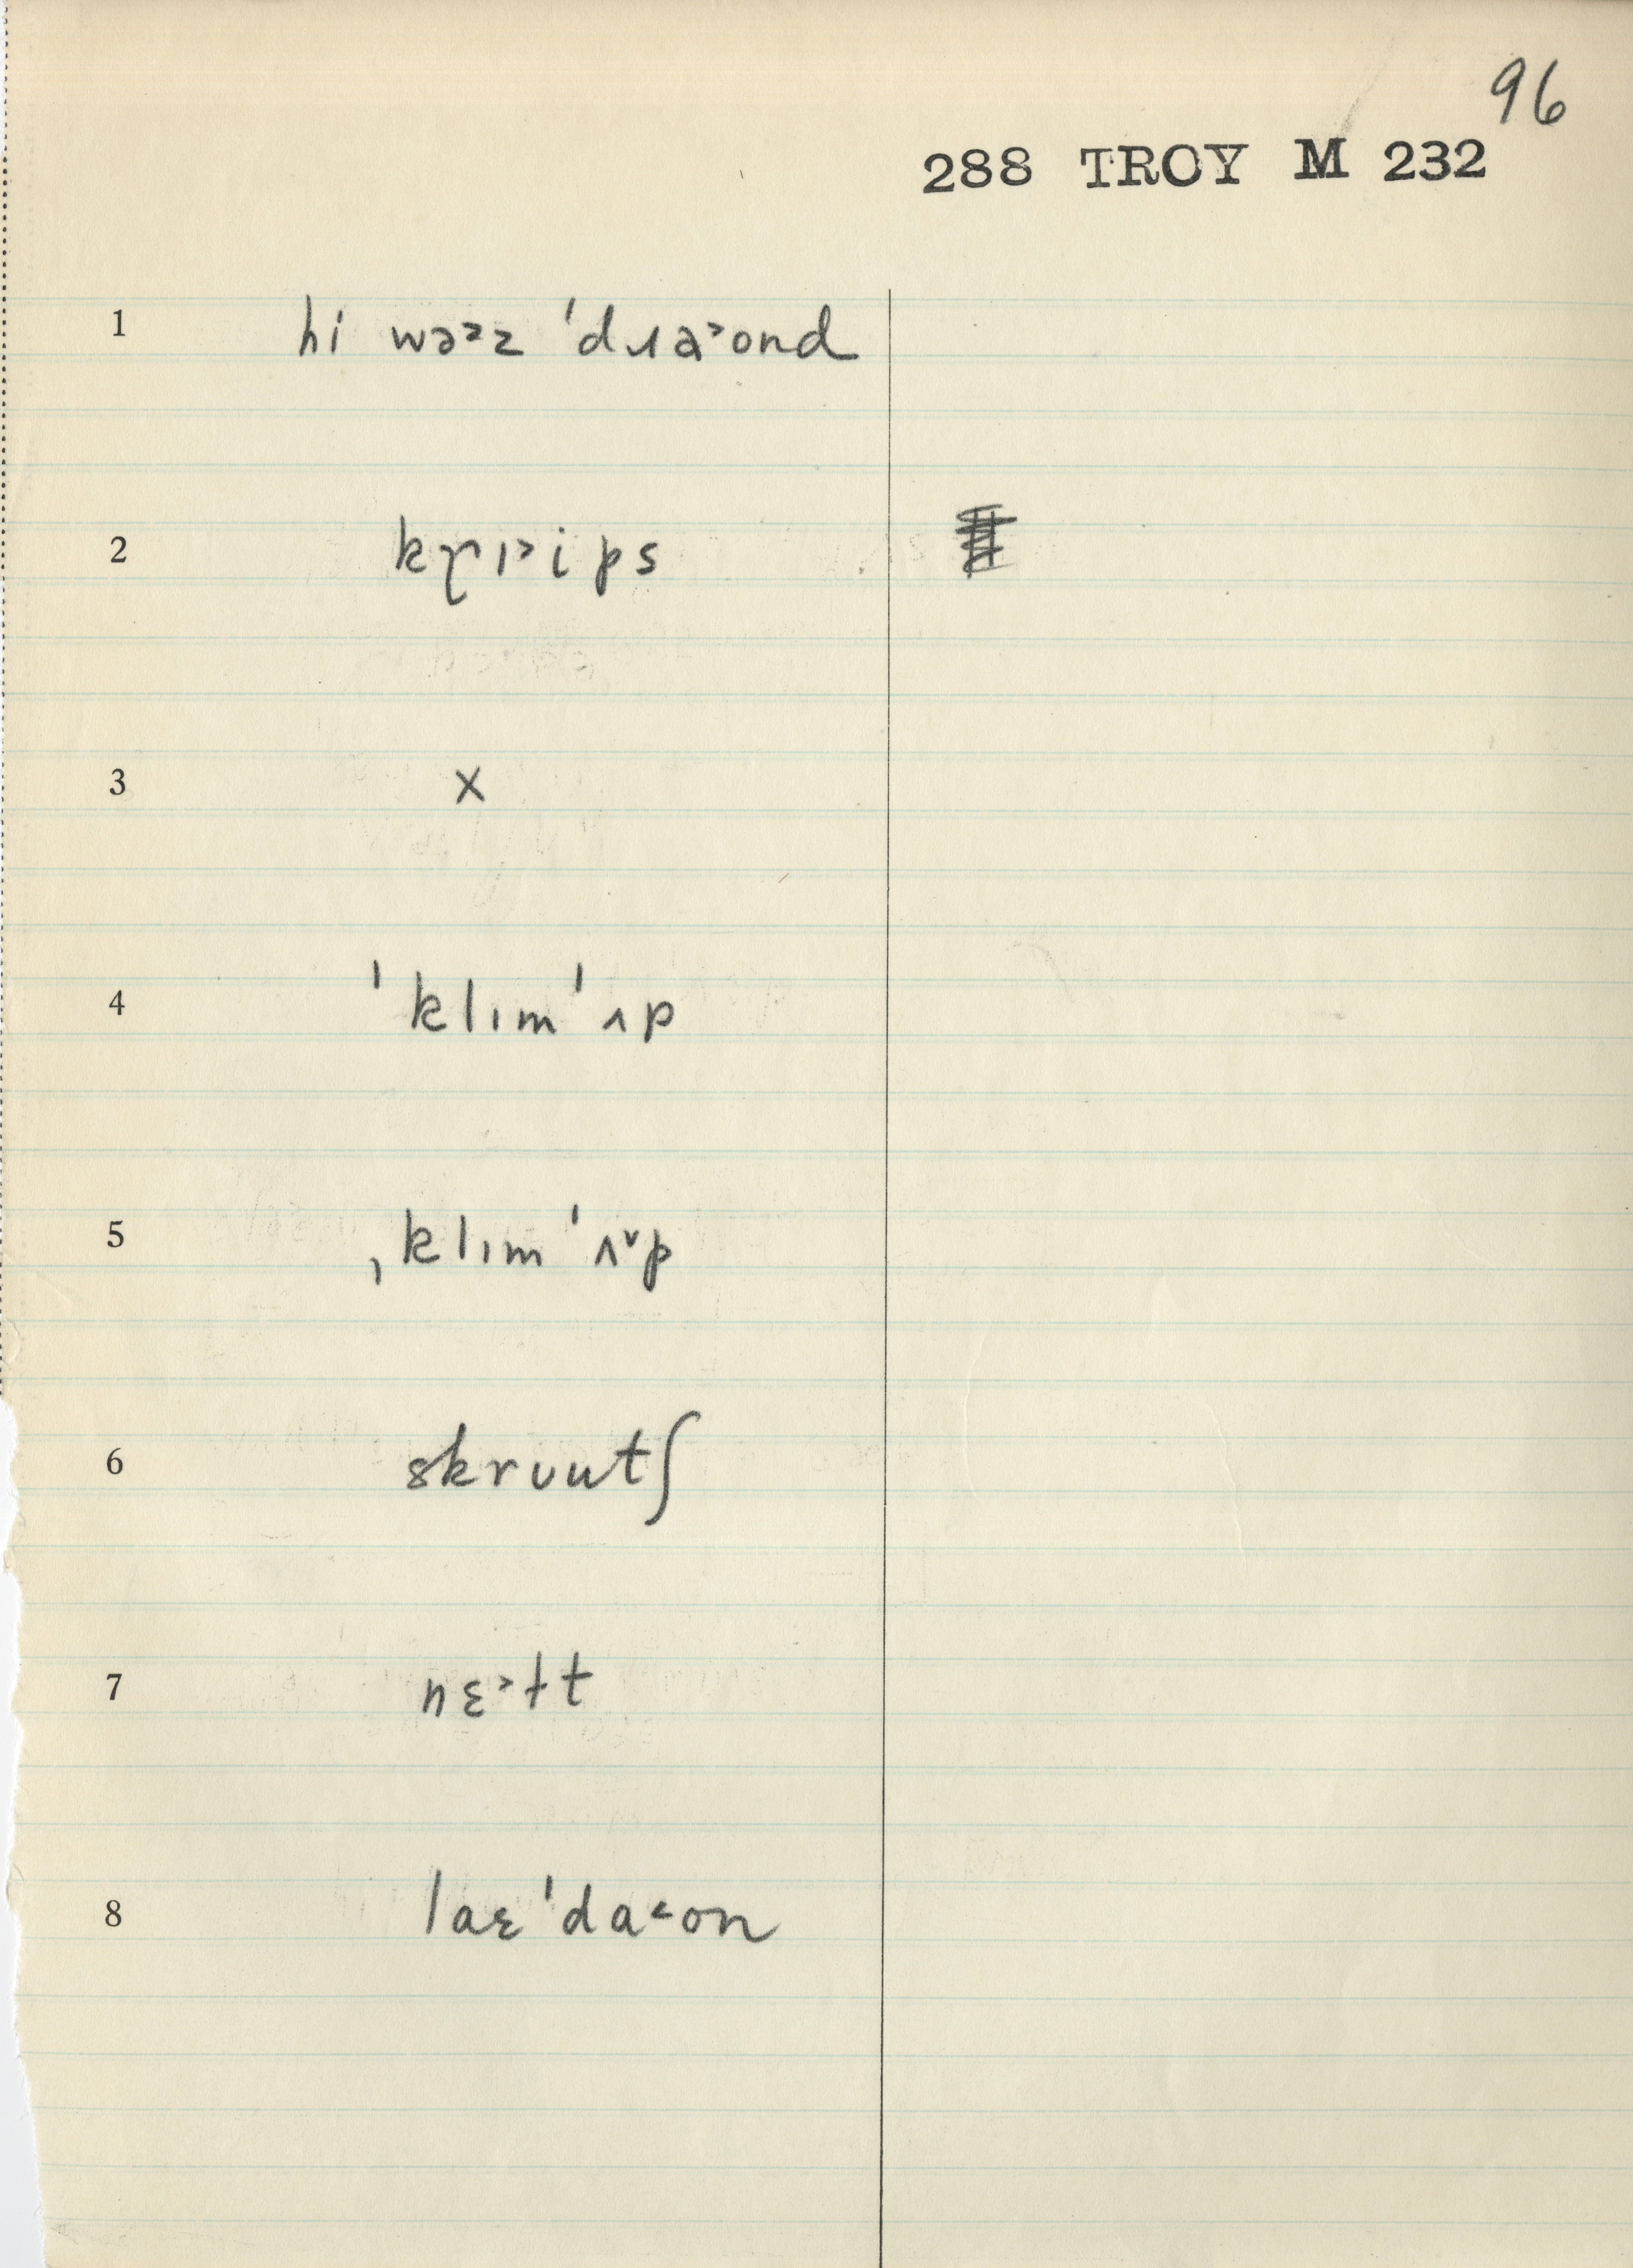 96
288 TROY M 232
1 hi wə˃z ˈdɹa˃ond
2 kɽɪ˃ips
3 x
4 ˈklımˈʌp
5 ˌklımˈʌ˅p
6 skrʋutʃ
7 nɛ˃ɫt
8 laɛˈda˂on